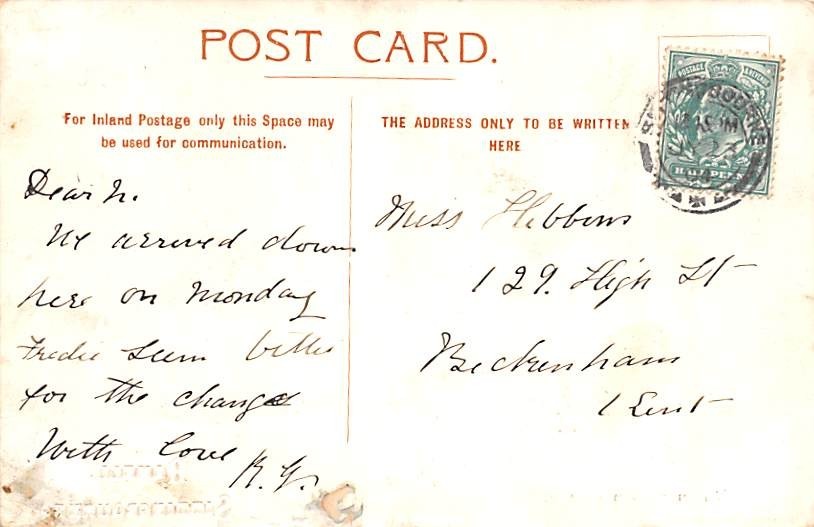 POST CARD.
For Inland Postage only this Space may
be used for communication.
THE ADDRESS ONLY TO BE WRITTEN
HERE
POSTAGE & REVENUE
HALFPENNY
Dear N.
We arrived down
here on Monday
Fredie seem better
for the change
With love
Miss Hibbens
129. High St
Beckenham
Kent